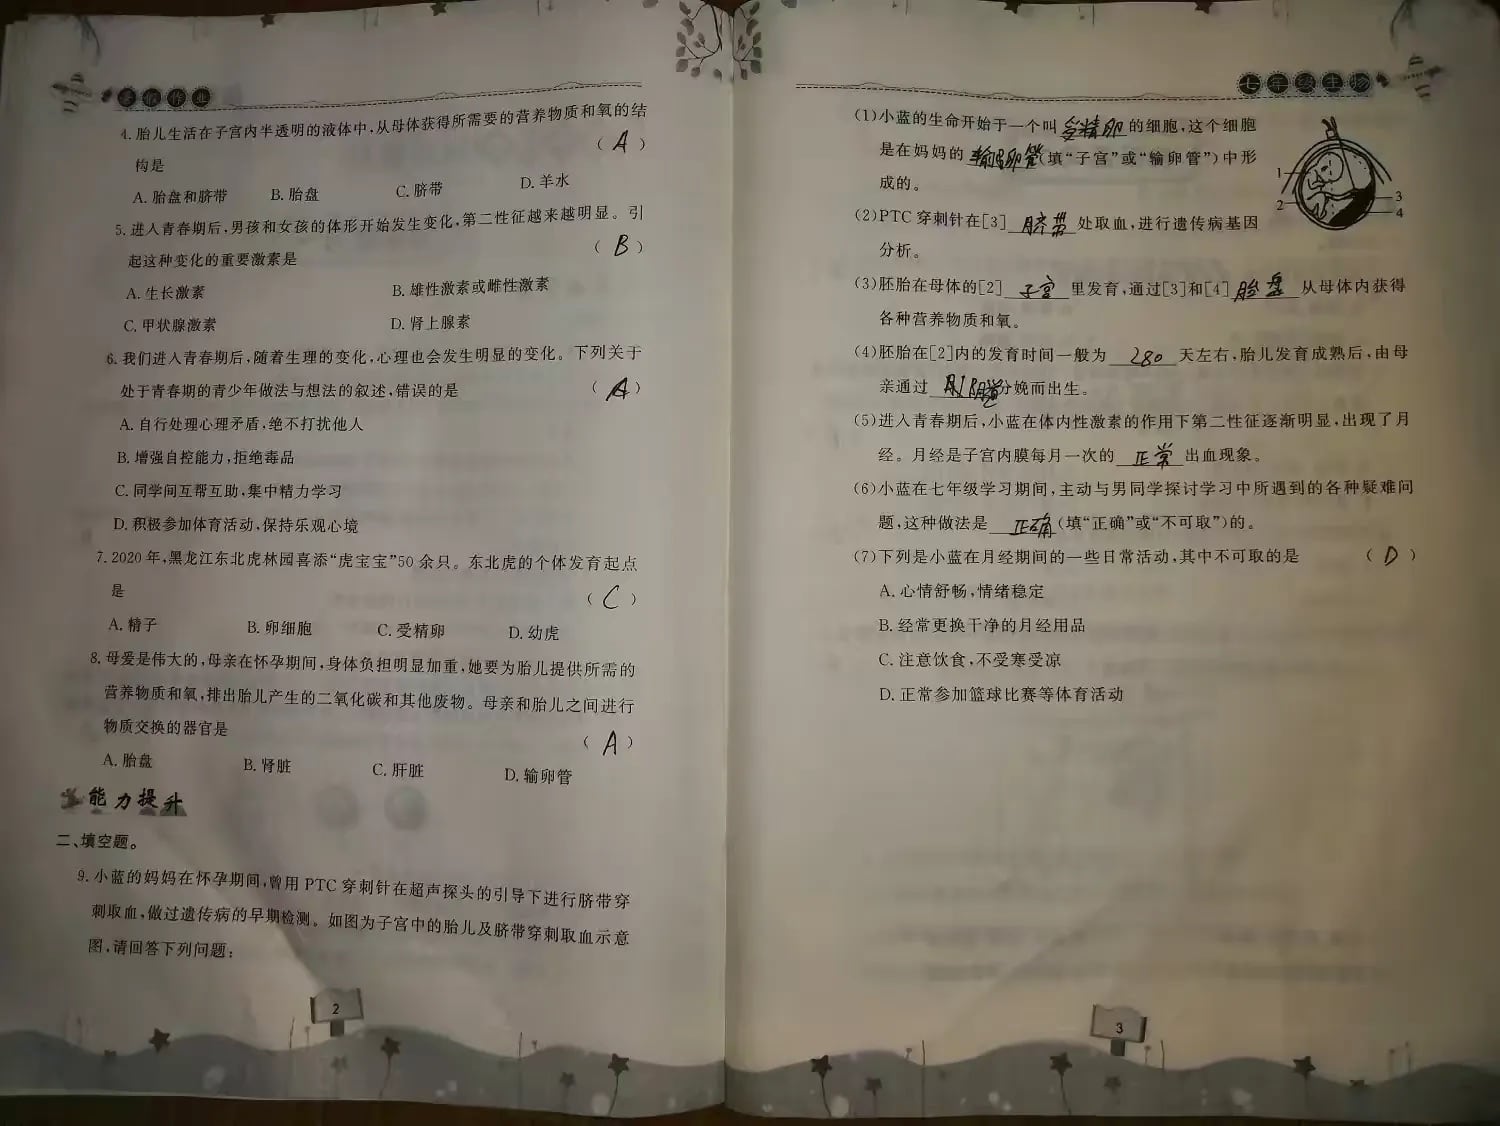 寒假作业
4. 胎儿生活在子宫内半透明的液体中,从母体获得所需要的营养物质和氧的结
构是
( A )
A. 胎盘和脐带 B. 胎盘 C. 脐带 D. 羊水
5. 进入青春期后,男孩和女孩的体形开始发生变化,第二性征越来越明显。引
起这种变化的重要激素是
( B )
A. 生长激素 B. 雄性激素或雌性激素
C. 甲状腺激素 D. 肾上腺素
6. 我们进入青春期后,随着生理的变化,心理也会发生明显的变化。下列关于
处于青春期的青少年做法与想法的叙述,错误的是 ( A )
A. 自行处理心理矛盾,绝不打扰他人
B. 增强自控能力,拒绝毒品
C. 同学间互帮互助,集中精力学习
D. 积极参加体育活动,保持乐观心境
7. 2020 年,黑龙江东北虎林园喜添“虎宝宝”50 余只。东北虎的个体发育起点
是 ( C )
A. 精子 B. 卵细胞 C. 受精卵 D. 幼虎
8. 母爱是伟大的,母亲在怀孕期间,身体负担明显加重,她要为胎儿提供所需的
营养物质和氧,排出胎儿产生的二氧化碳和其他废物。母亲和胎儿之间进行
物质交换的器官是 ( A )
A. 胎盘 B. 肾脏 C. 肝脏 D. 输卵管
能力提升
二、填空题。
9. 小蓝的妈妈在怀孕期间,曾用 PTC 穿刺针在超声探头的引导下进行脐带穿
刺取血,做过遗传病的早期检测。如图为子宫中的胎儿及脐带穿刺取血示意
图,请回答下列问题:
2
七年级生物
(1)小蓝的生命开始于一个叫 受精卵 的细胞,这个细胞
是在妈妈的 输卵管 (填“子宫”或“输卵管”)中形
成的。
1
2
3
4
(2)PTC 穿刺针在[3] 脐带 处取血,进行遗传病基因
分析。
(3)胚胎在母体的[2] 子宫 里发育,通过[3]和[4] 胎盘 从母体内获得
各种营养物质和氧。
(4)胚胎在[2]内的发育时间一般为 280 天左右,胎儿发育成熟后,由母
亲通过 分娩而出生。
(5)进入青春期后,小蓝在体内性激素的作用下第二性征逐渐明显,出现了月
经。月经是子宫内膜每月一次的 正常 出血现象。
(6)小蓝在七年级学习期间,主动与男同学探讨学习中所遇到的各种疑难问
题,这种做法是 正确 (填“正确”或“不可取”)的。
(7)下列是小蓝在月经期间的一些日常活动,其中不可取的是 ( D )
A. 心情舒畅,情绪稳定
B. 经常更换干净的月经用品
C. 注意饮食,不受寒受凉
D. 正常参加篮球比赛等体育活动
3